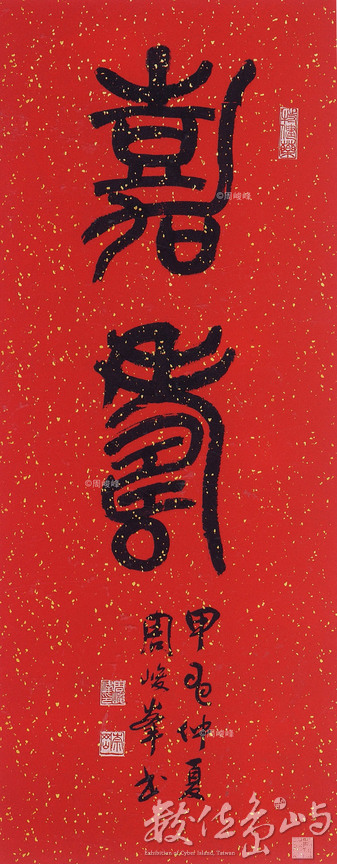 嘉
壽
甲仲夏
周峻峯書
©周峻峰
©周峻峰
©周峻峰
數位島嶼
Exhibition of Cyber Island, Taiwan